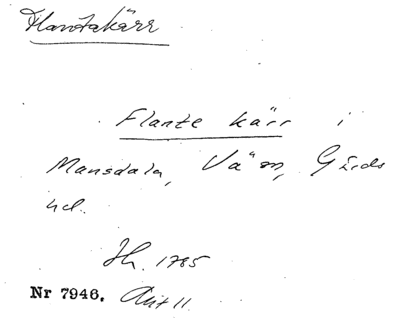 Flantakärr
Flante kärr i
Mansdala, Vä sn, Gärds
hd.
Jh. 1785
Nr 7946. Akt 11